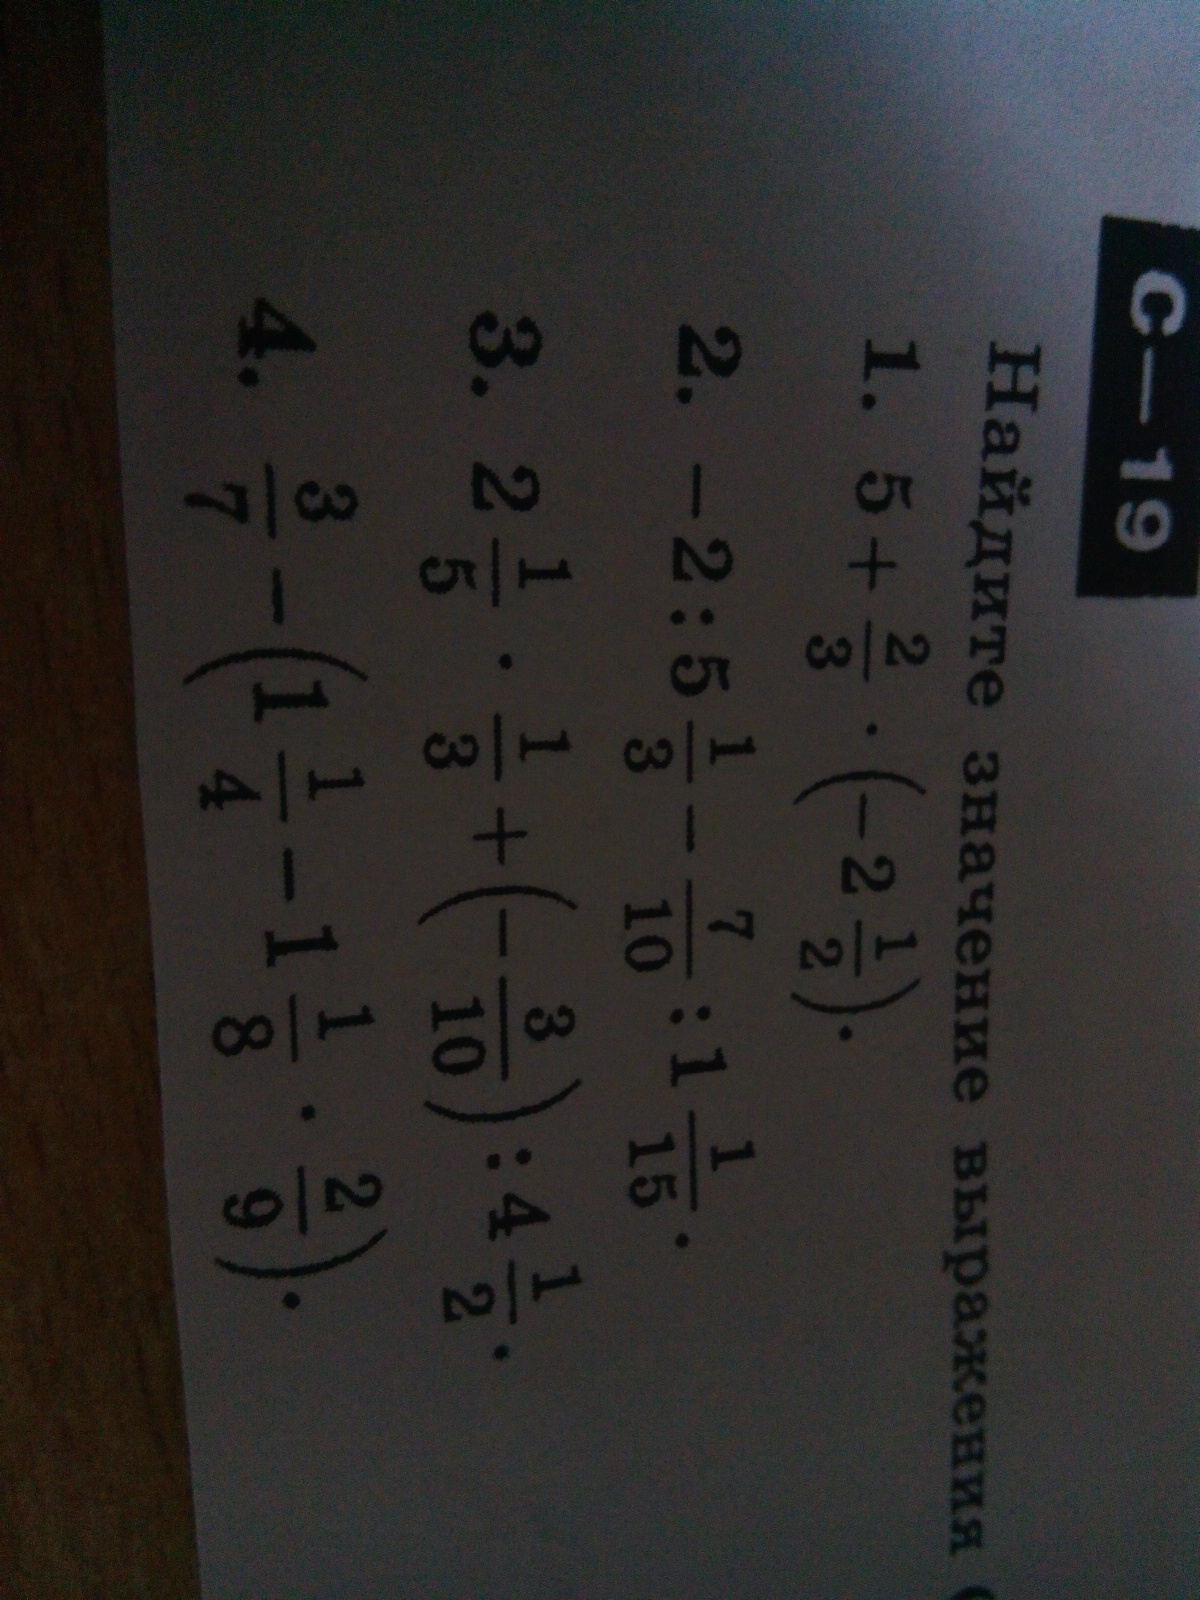 С—19
Найдите значение выражения
1. 5 + 2/3 · (−2 1/2).
2. −2 : 5 1/3 − 7/10 : 1 1/15.
3. 2 1/5 · 1/3 + (−3/10) : 4 1/2.
4. 3/7 − (1 1/4 − 1 1/8 · 2/9).